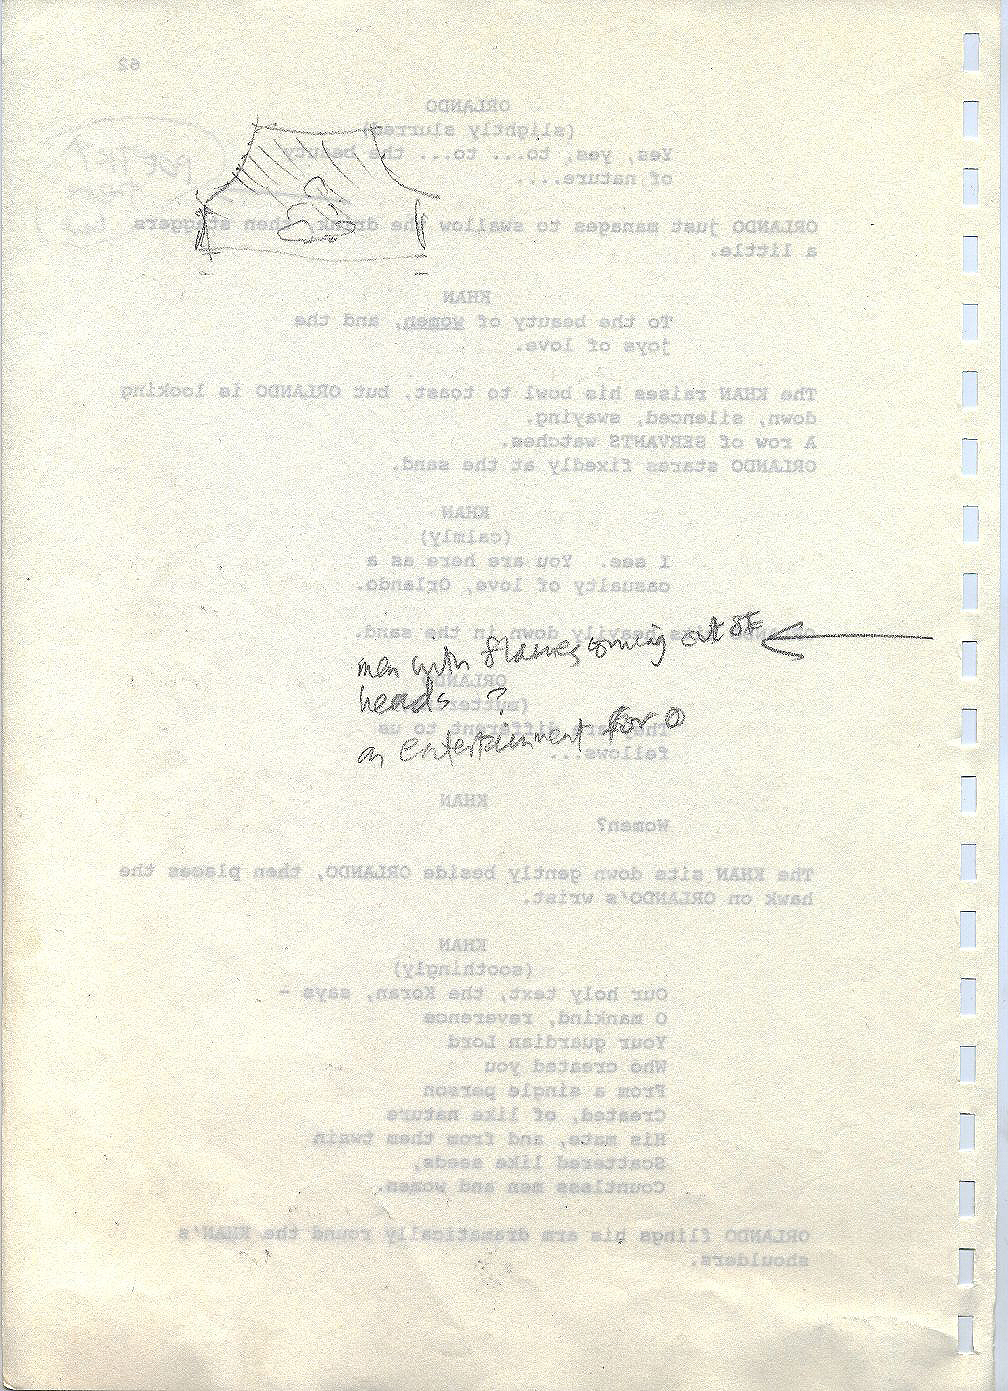 62
ORLANDO
(slightly slurred)
Yes, yes, to... to... the beauty
of nature....
ORLANDO just manages to swallow the drink, then staggers
a little.
KHAN
To the beauty of women, and the
joys of love.
The KHAN raises his bowl to toast, but ORLANDO is looking
down, silenced, swaying.
A row of SERVANTS watches.
ORLANDO stares fixedly at the sand.
KHAN
(calmly)
I see. You are here as a
casualty of love, Orlando.
heavily down in the sand.
men with flames coming out of
ORLANDO
heads ?
different to us
an entertainment for O
fellows...
KHAN
Women?
The KHAN sits down gently beside ORLANDO, then places the
hawk on ORLANDO's wrist.
KHAN
(soothingly)
Our holy text, the Koran, says -
O mankind, reverence
Your guardian Lord
Who created you
From a single person
Created, of like nature
His mate, and from them twain
Scattered like seeds,
Countless men and women.
ORLANDO flings his arm dramatically round the KHAN's
shoulders.